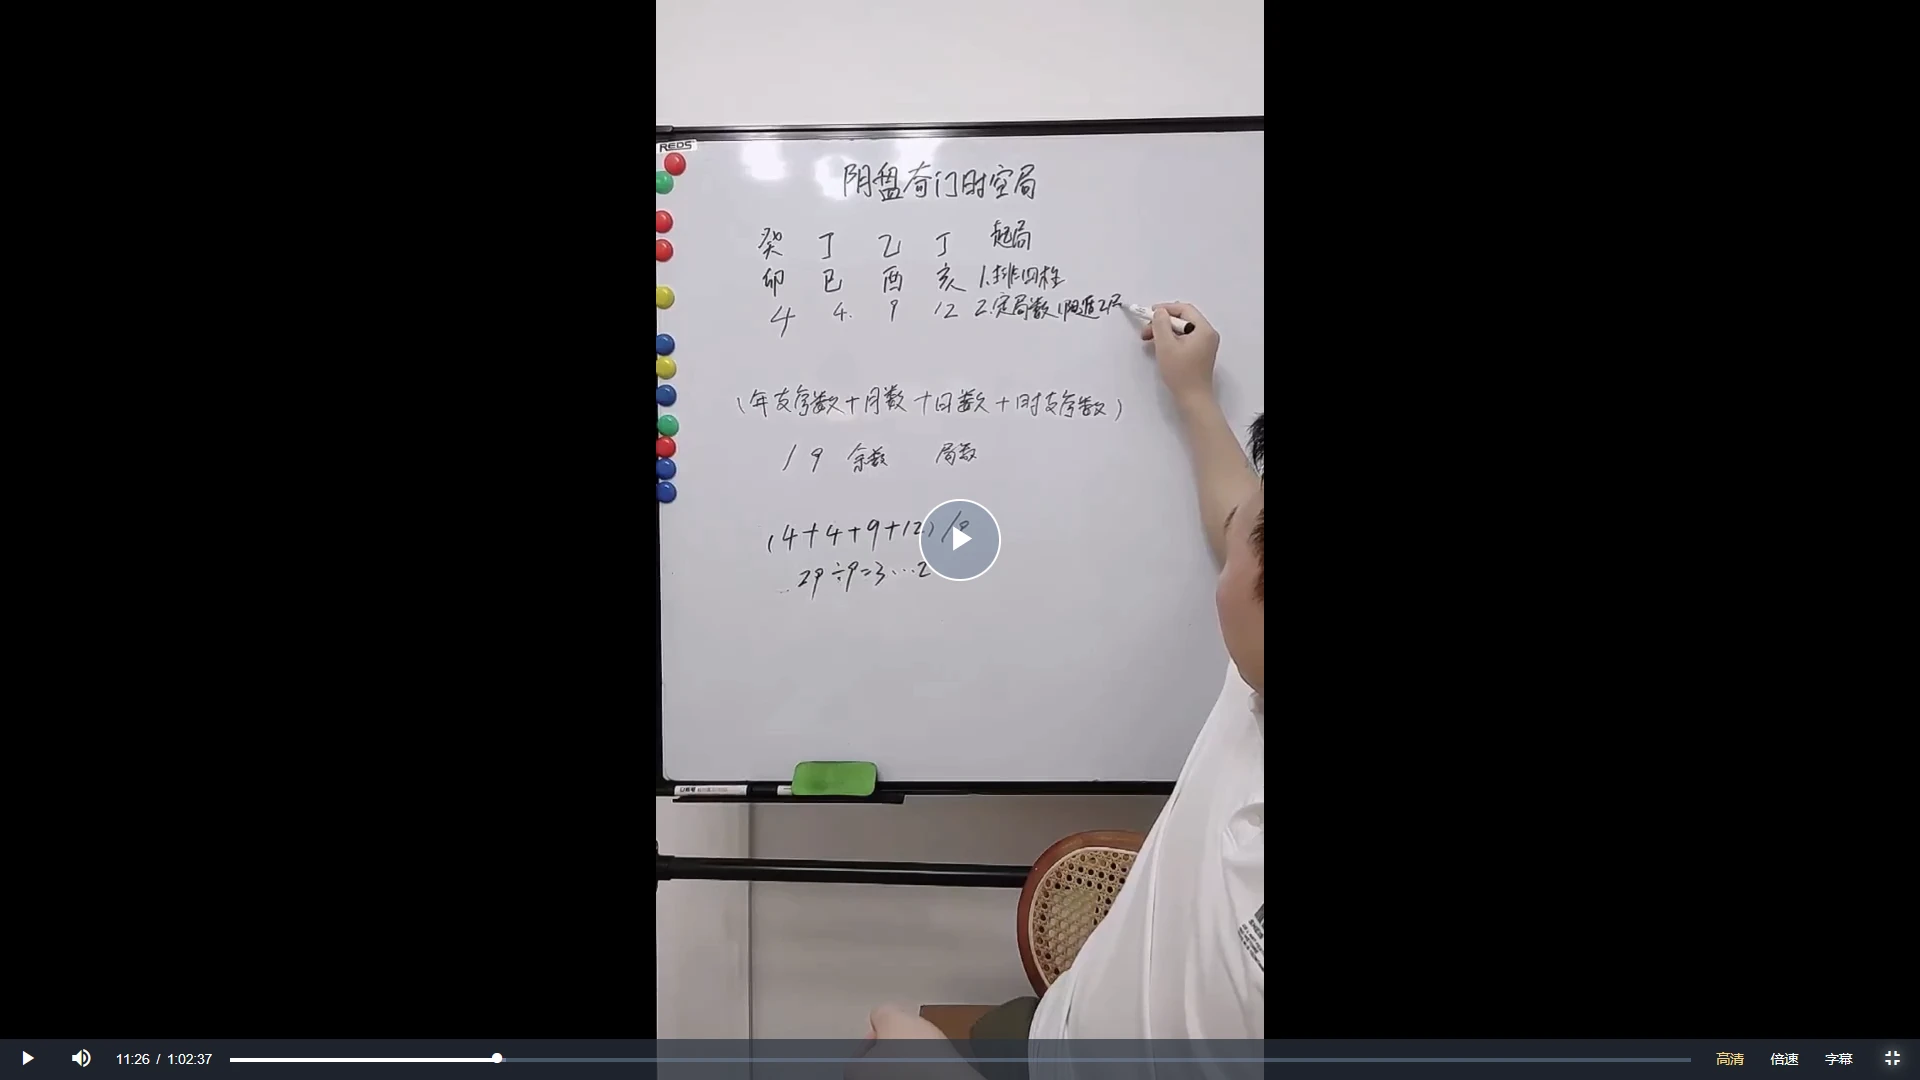 REDS
阴盘奇门时空局
癸 丁 乙 丁 起局
卯 巳 酉 亥 1.排四柱
4 4. 9 12 2.定局数(阴遁2局
(年支序数+月数+日数+时支序数)
/ 9 余数 局数
(4+4+9+12)/9
29÷9=3…2
11:26 / 1:02:37 高清 倍速 字幕